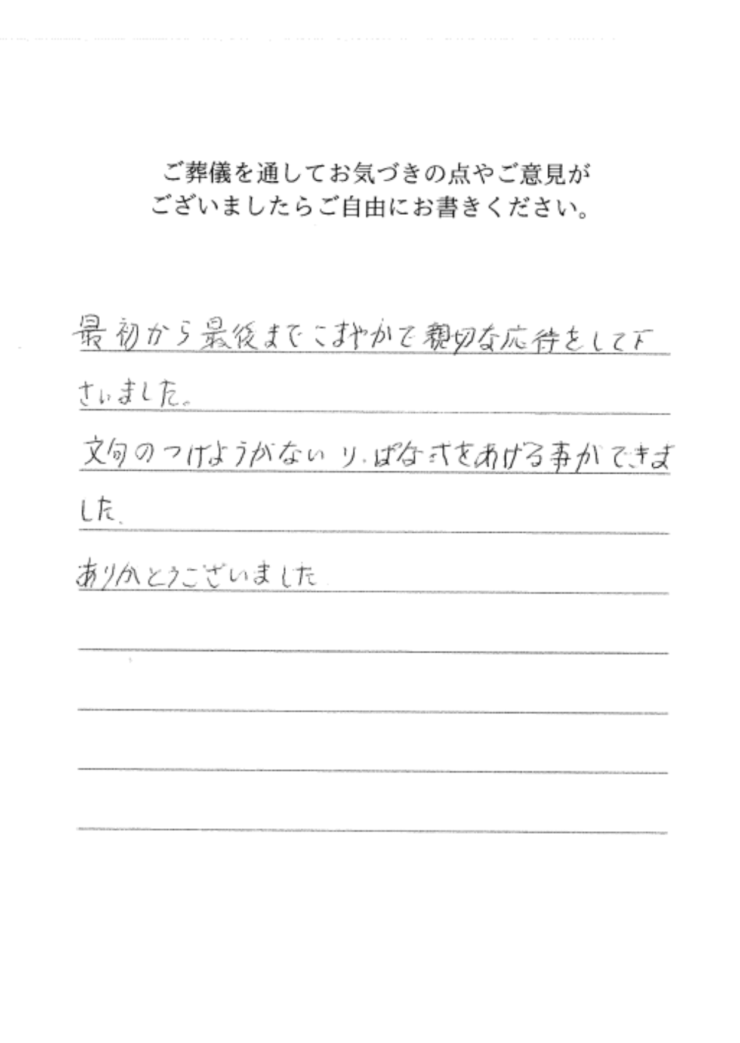 ご葬儀を通してお気づきの点やご意見が
ございましたらご自由にお書きください。
最初から最後までこまやかで親切な応待をして下
さいました。
文句のつけようがないりっぱな式をあげる事ができま
した。
ありがとうございました